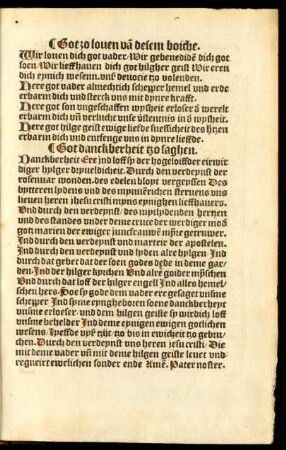 ¶ Got zo louen vã desem boiche.
Wir louen dich got vader. Wir gebenedidẽ dich got
soen. Wir lieffhauen dich got hilgher geist Wir eren
dich eynich wesenn. vnß deuocie tzo volenden.
Here got vader almechtich schepper hemel vnd erde
erbarm dich vnd sterck vns mit dynre krafft.
Here got son vngeschaffen wysheit erloser d werelt
erbarm dich vñ verlucht vnse vstennis in d wysheit.
Here got hilge geist ewige liefde suesslicheit des htzen
erbarm dich vnd entfenge vns in dynre lieffde.
¶ Got danckberheit tzo saghen.
Danckberheit Ere jnd loff sy der hogeloiffder eirwir
diger hylger drpueldicheit. Durch den verdeynst der
rosenuar wonden. des edelen bloyt vergyssen Des
bytteren lydens vnd des mynnerichen steruens vns
lieuen heren jhesu cristi myns eynighen lieffhauers.
Vnd durch den verdeynst. des mytlydenden hertzen
vnd des standes vnder deme cruce der werdiger moď
gotz marien der ewiger junsfrauwẽ myꝛe getruwer.
Jnd durch den verdeynst vnd marteir der apostelen.
Jnd durch den verdeynst vnd lyden alre hylgen Jnd
durch dat gebet dat der soen godes dede in deme gar
den. Jnd der hilger kyrchen Vnd alre goider mẏschen
Vnd durch dat loff der hilger engell Jnd alles hemel
schen hers. Hoe sy gode dem vader ere gesaget vnsme
schepper Jnd syme eynghebaren soene danckberheyt
vnsme erloser. vnd dem hilgen geiste sy wirdich loff
vnsme behelder Jnd deme eynigen ewigen gotlichen
wesens
chen. Durch den verdeynst vns heren jesu cristi. Die
mit deme vader vñ mit deme hilgen geiste leuet vnd
regneirt ewelichen sonder ende Amẽ. Pater noster.